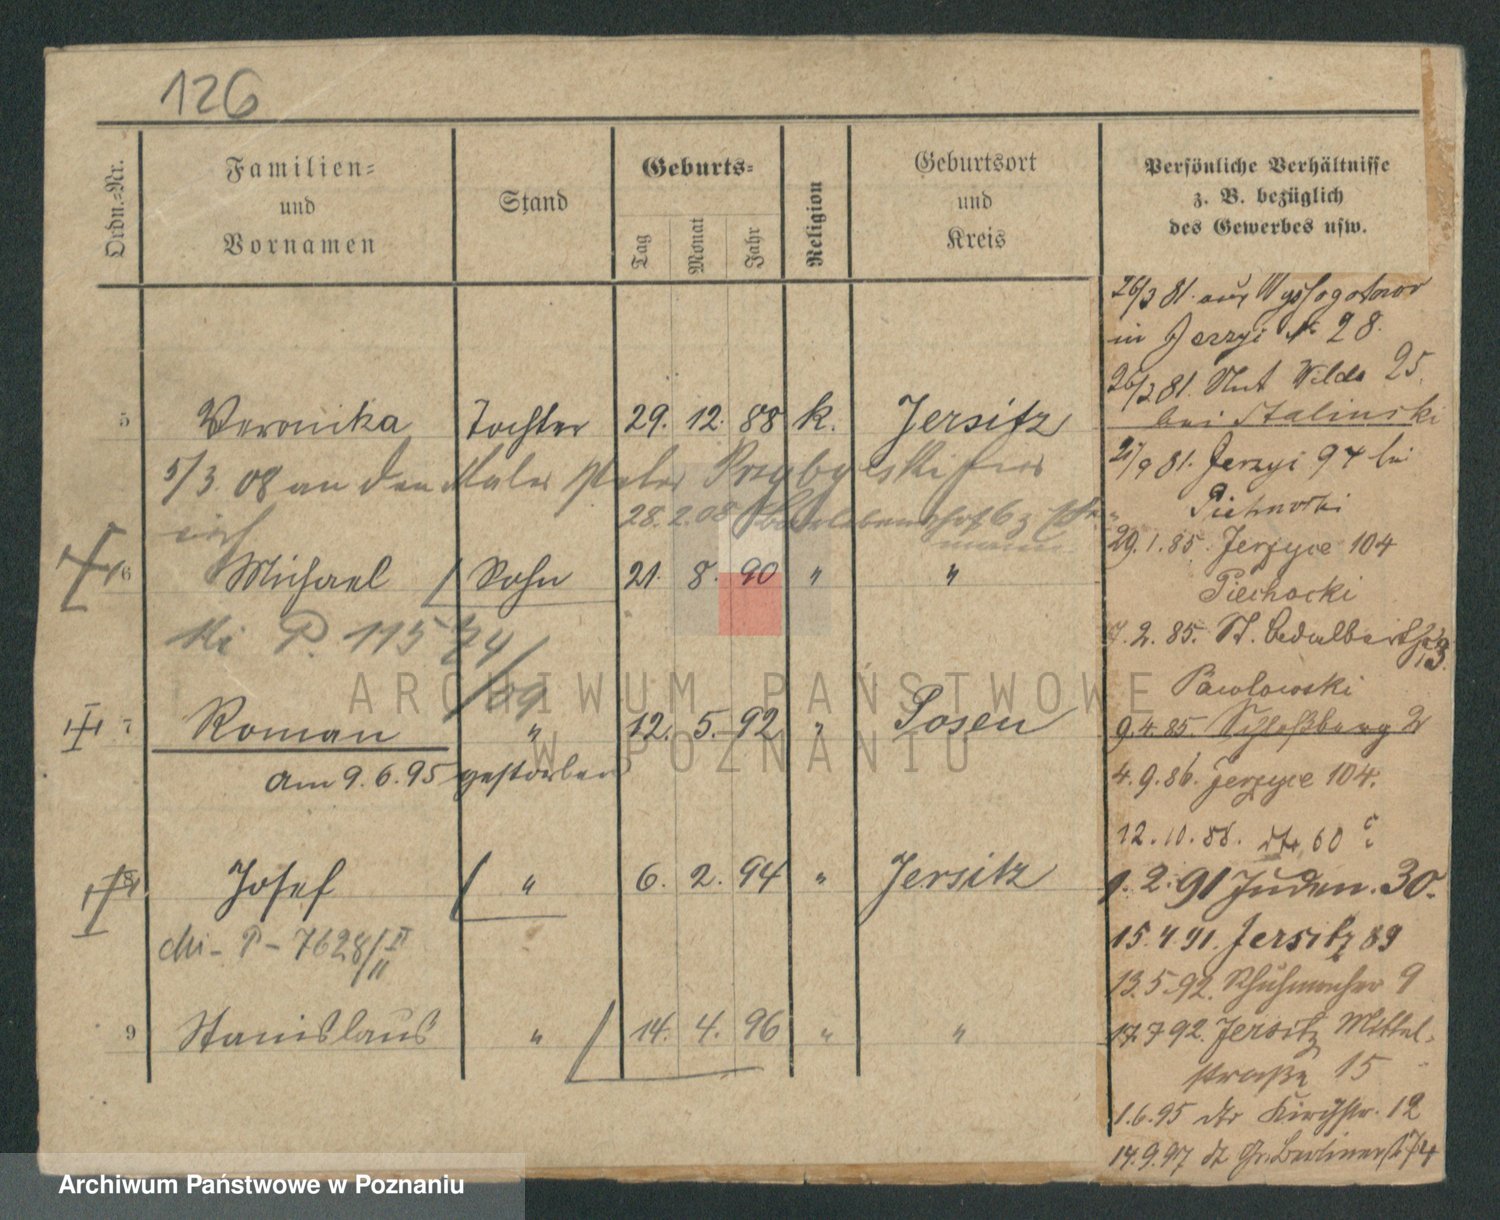 126
Ordn.-Nr.
Familien-
und
Vornamen
Stand
Geburts-
Tag
Monat
Jahr
Religion
Geburtsort
und
Kreis
Persönliche Verhältnisse
z. B. bezüglich
des Gewerbes usw.
5 Veronika Tochter 29. 12. 88 k. Jersitz
5/3. 08 an den Maler Peter Przybylski
28.2.08
6 Michael Sohn 21. 8. 90 " "
P. 11574/09
7 Roman " 12. 5. 92 " Posen
am 9.6.95 gestorben
8 Josef " 6. 2. 94 " Jersitz
P-7628/II
9 Stanislaus " 14. 4. 96 " "
26/3 81. aus Wyssogotowo
in Jerzyi № 28.
26/3 81. Wilda 25.
bei Stalinski
81. Jerzyi 94 bei
29.1.85. Jerzyce 104
Piechocki
7.2.85. St. Adalbert
Pawlowski
9.4.85. Schloßberg 2
4.9.86. Jerzyce 104.
12.10.86. dto 60 c
1.2.91 Juden. 30.
15.4.91. Jersitz 89
13.5.92. Schuhmacher 9
17.7.92. Jersitz Mittel-
straße 15
1.6.95 dto Kirchstr. 12
14.9.97 dto Gr. Berlinerstr 74
ARCHIWUM PAŃSTWOWE
W POZNANIU
Archiwum Państwowe w Poznaniu